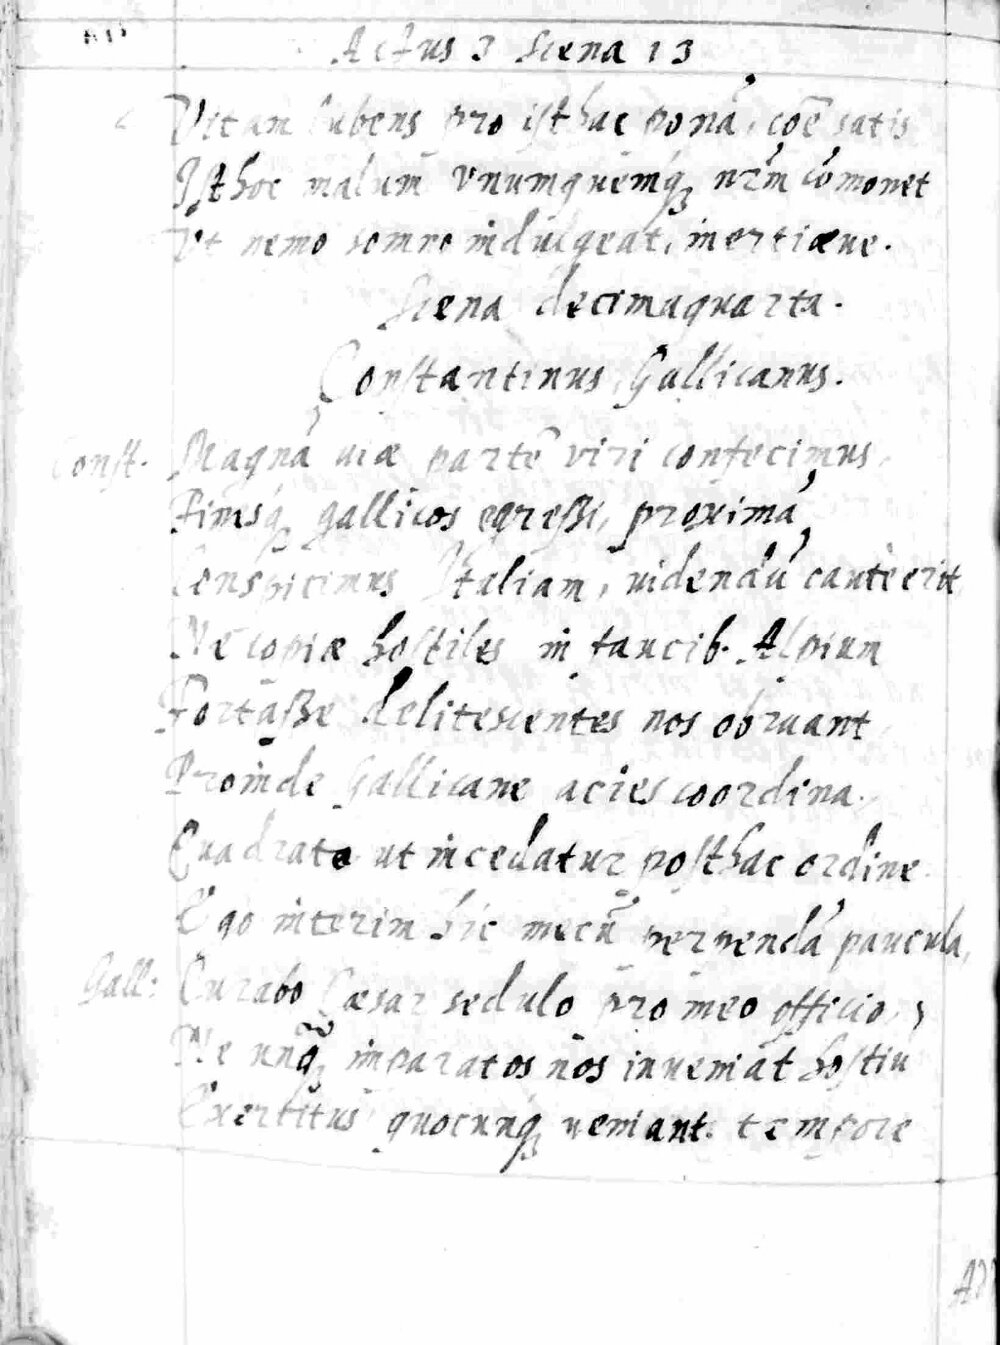 Actus 3 Scena 13
Vitam lubens pro isthac ponā, cōē satis
Isthoc malum vnumquemq́ꝫ nr̄m cōmonet
Vt nemo somno indulgeat, inertiæue.
Scena decimaquarta.
Constantinus, Gallicanus.
Const. Magnā uiæ partē viri confecimus,
Finesq́ꝫ gallicos egreßi, proximā
Conspicimus Italiam, uidendū cautè erit
Ne copiæ hostiles in faucib. Alpium
Fortaße delitescentes nos obruant,
Proinde Gallicane acies coordina.
Quadrato ut incedatur posthac ordine.
Ego interim hîc mecū perpendā paucula,
Gall: Curabo Cæsar sedulo pro meo officio,
Ne unq̄ imparatos nos inueniāt hostiū
Exercitus quocunqꝫ ueniant tempore